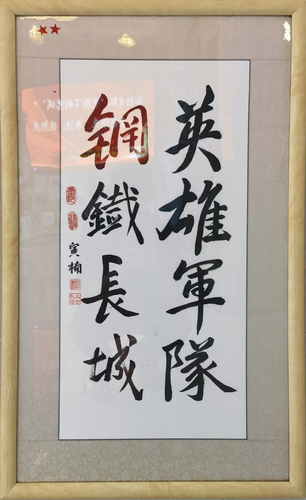 英雄軍隊
鋼鐵長城
寅楠